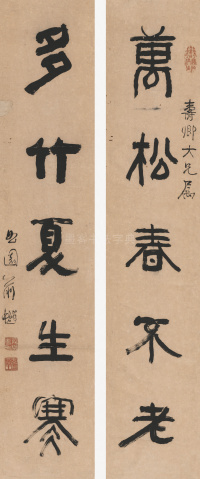 萬松春不老
壽卿大兄屬
多竹夏生寒
曲園俞樾